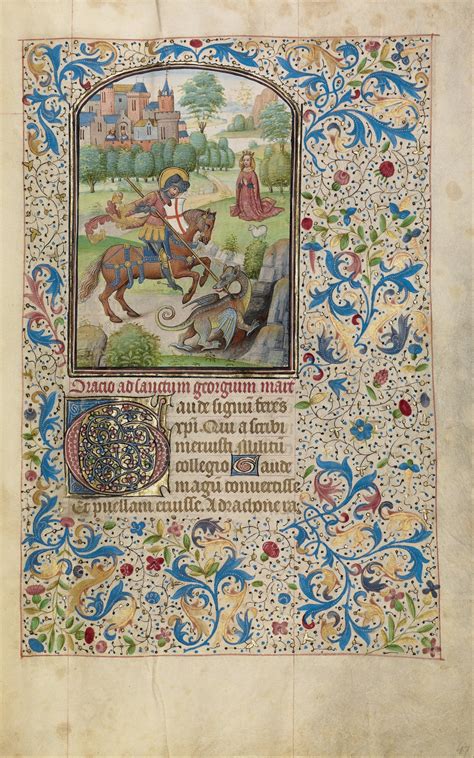 Oracio ad sanctum georgium mart
Gaude signū feres
xpi. Qui a scribi
meruisti Militū
collegio Gaude
magū convertisse
Et puellam eruisse. A dracone ra